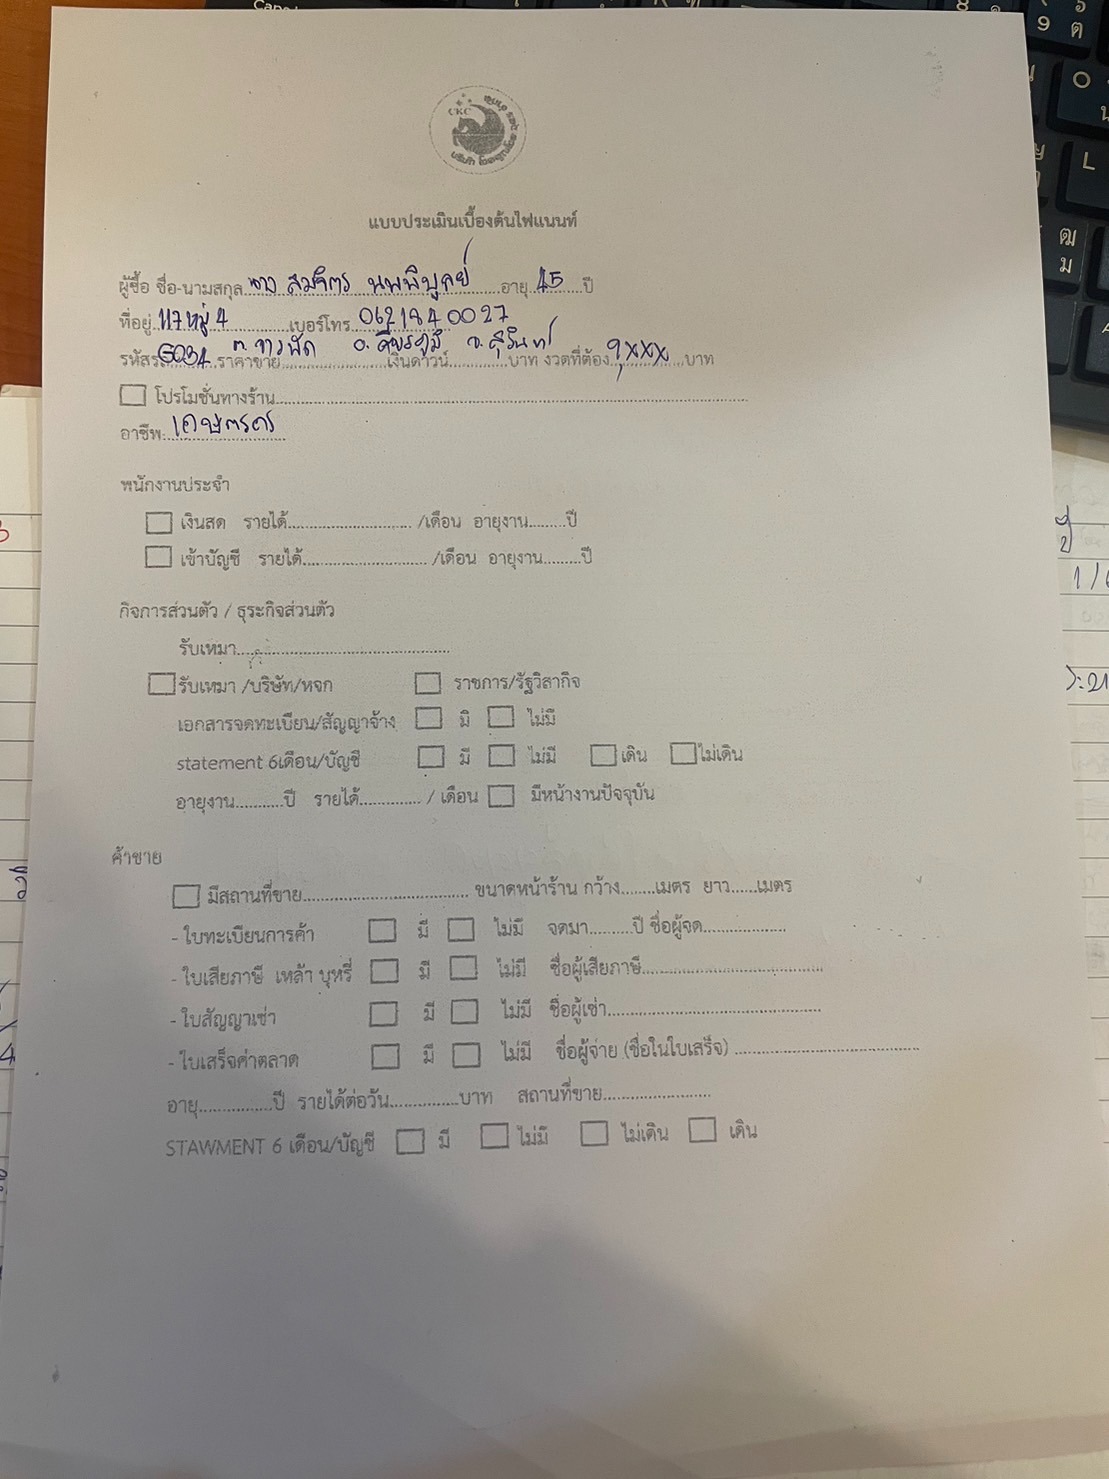 CKC
แบบประเมินเบื้องต้นไฟแนนท์
ผู้ซื้อ ชื่อ-นามสกุล นาง สมจิตร นพพิบูลย์ อายุ 45 ปี
ที่อยู่ 117 หมู่ 4 เบอร์โทร 0621840027
ต.จารพัด อ.ศีขรภูมิ จ.สุรินทร์
รหัสรถ G034 ราคาขาย เงินดาวน์ บาท งวดที่ต้อง 9,xxx บาท
โปรโมชั่นทางร้าน
อาชีพ เกษตรกร
พนักงานประจำ
เงินสด รายได้ /เดือน อายุงาน ปี
เข้าบัญชี รายได้ /เดือน อายุงาน ปี
กิจการส่วนตัว / ธุระกิจส่วนตัว
รับเหมา
รับเหมา /บริษัท/หจก ราชการ/รัฐวิสากิจ
เอกสารจดทะเบียน/สัญญาจ้าง มี ไม่มี
statement 6เดือน/บัญชี มี ไม่มี เดิน ไม่เดิน
อายุงาน ปี รายได้ / เดือน มีหน้างานปัจจุบัน
ค้าขาย
มีสถานที่ขาย ขนาดหน้าร้าน กว้าง เมตร ยาว เมตร
- ใบทะเบียนการค้า มี ไม่มี จดมา ปี ชื่อผู้จด
- ใบเสียภาษี เหล้า บุหรี่ มี ไม่มี ชื่อผู้เสียภาษี
- ใบสัญญาเช่า มี ไม่มี ชื่อผู้เช่า
- ใบเสร็จค่าตลาด มี ไม่มี ชื่อผู้จ่าย (ชื่อในใบเสร็จ)
อายุ ปี รายได้ต่อวัน บาท สถานที่ขาย
STAWMENT 6 เดือน/บัญชี มี ไม่มี ไม่เดิน เดิน